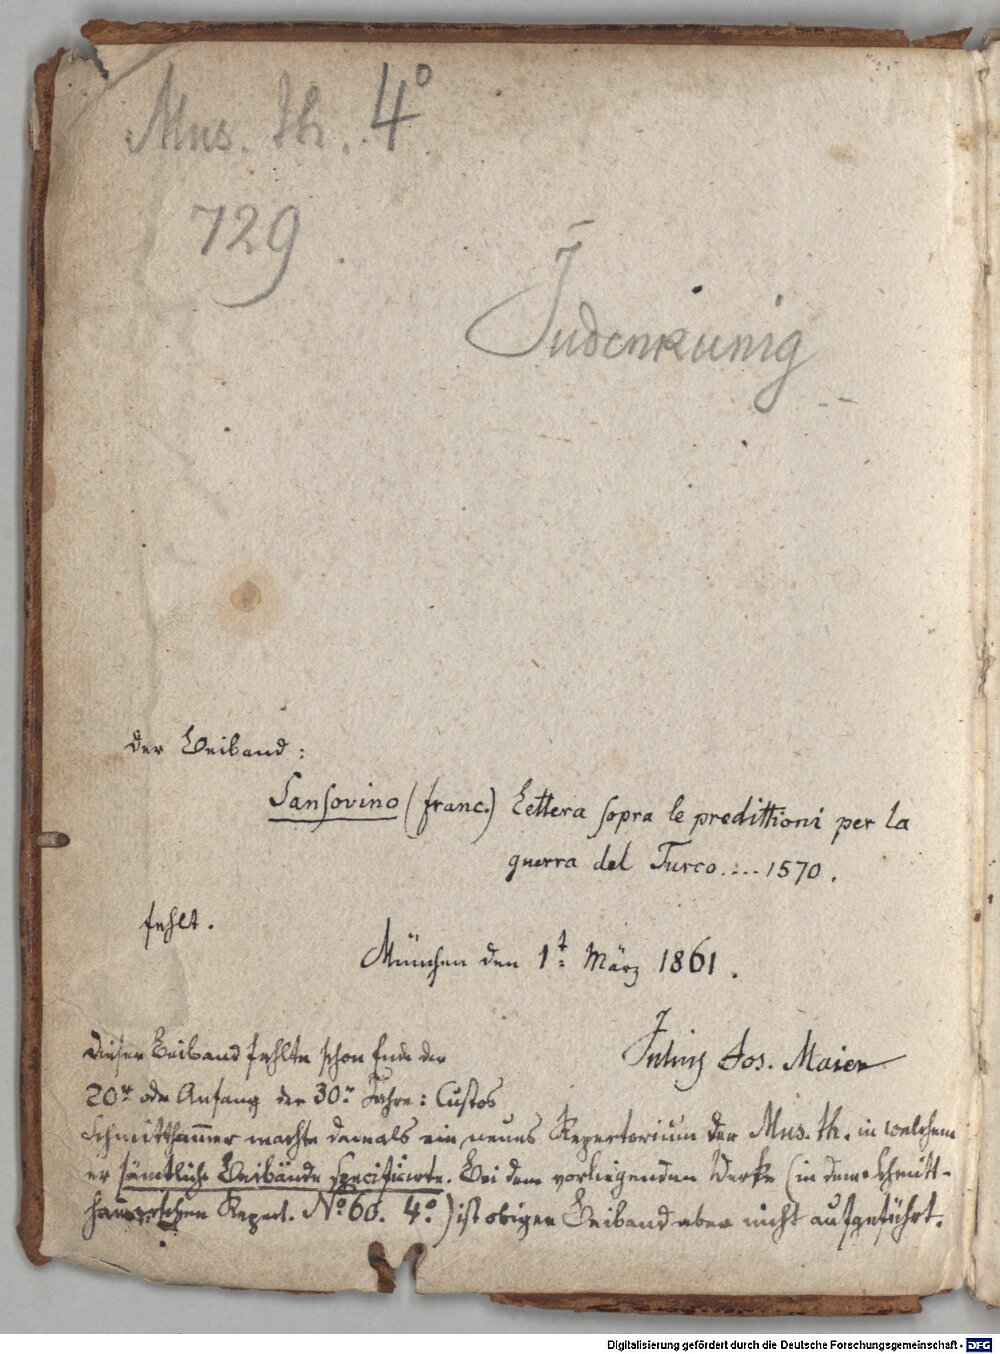 Mus. th. 4º
729
Judenkunig
der Beiband:
Sansovino (franc.) Lettera sopra le predittioni per la
guerra del Turco.... 1570.
fehlt.
München den 1t. März 1861.
Julius Jos. Maier
Dieser Beiband fehlte schon Ende der
20er oder Anfang der 30er Jahre: Custos
Schmitthammer machte damals ein neues Repertorium der Mus. th. in welchem
er sämtliche Beibände specificirte. Bei dem vorliegenden Werke (in dem Schmitt-
hammerschen Repert. No. 60. 4º.) ist obiger Beiband aber nicht aufgeführt.
Digitalisierung gefördert durch die Deutsche Forschungsgemeinschaft - DFG